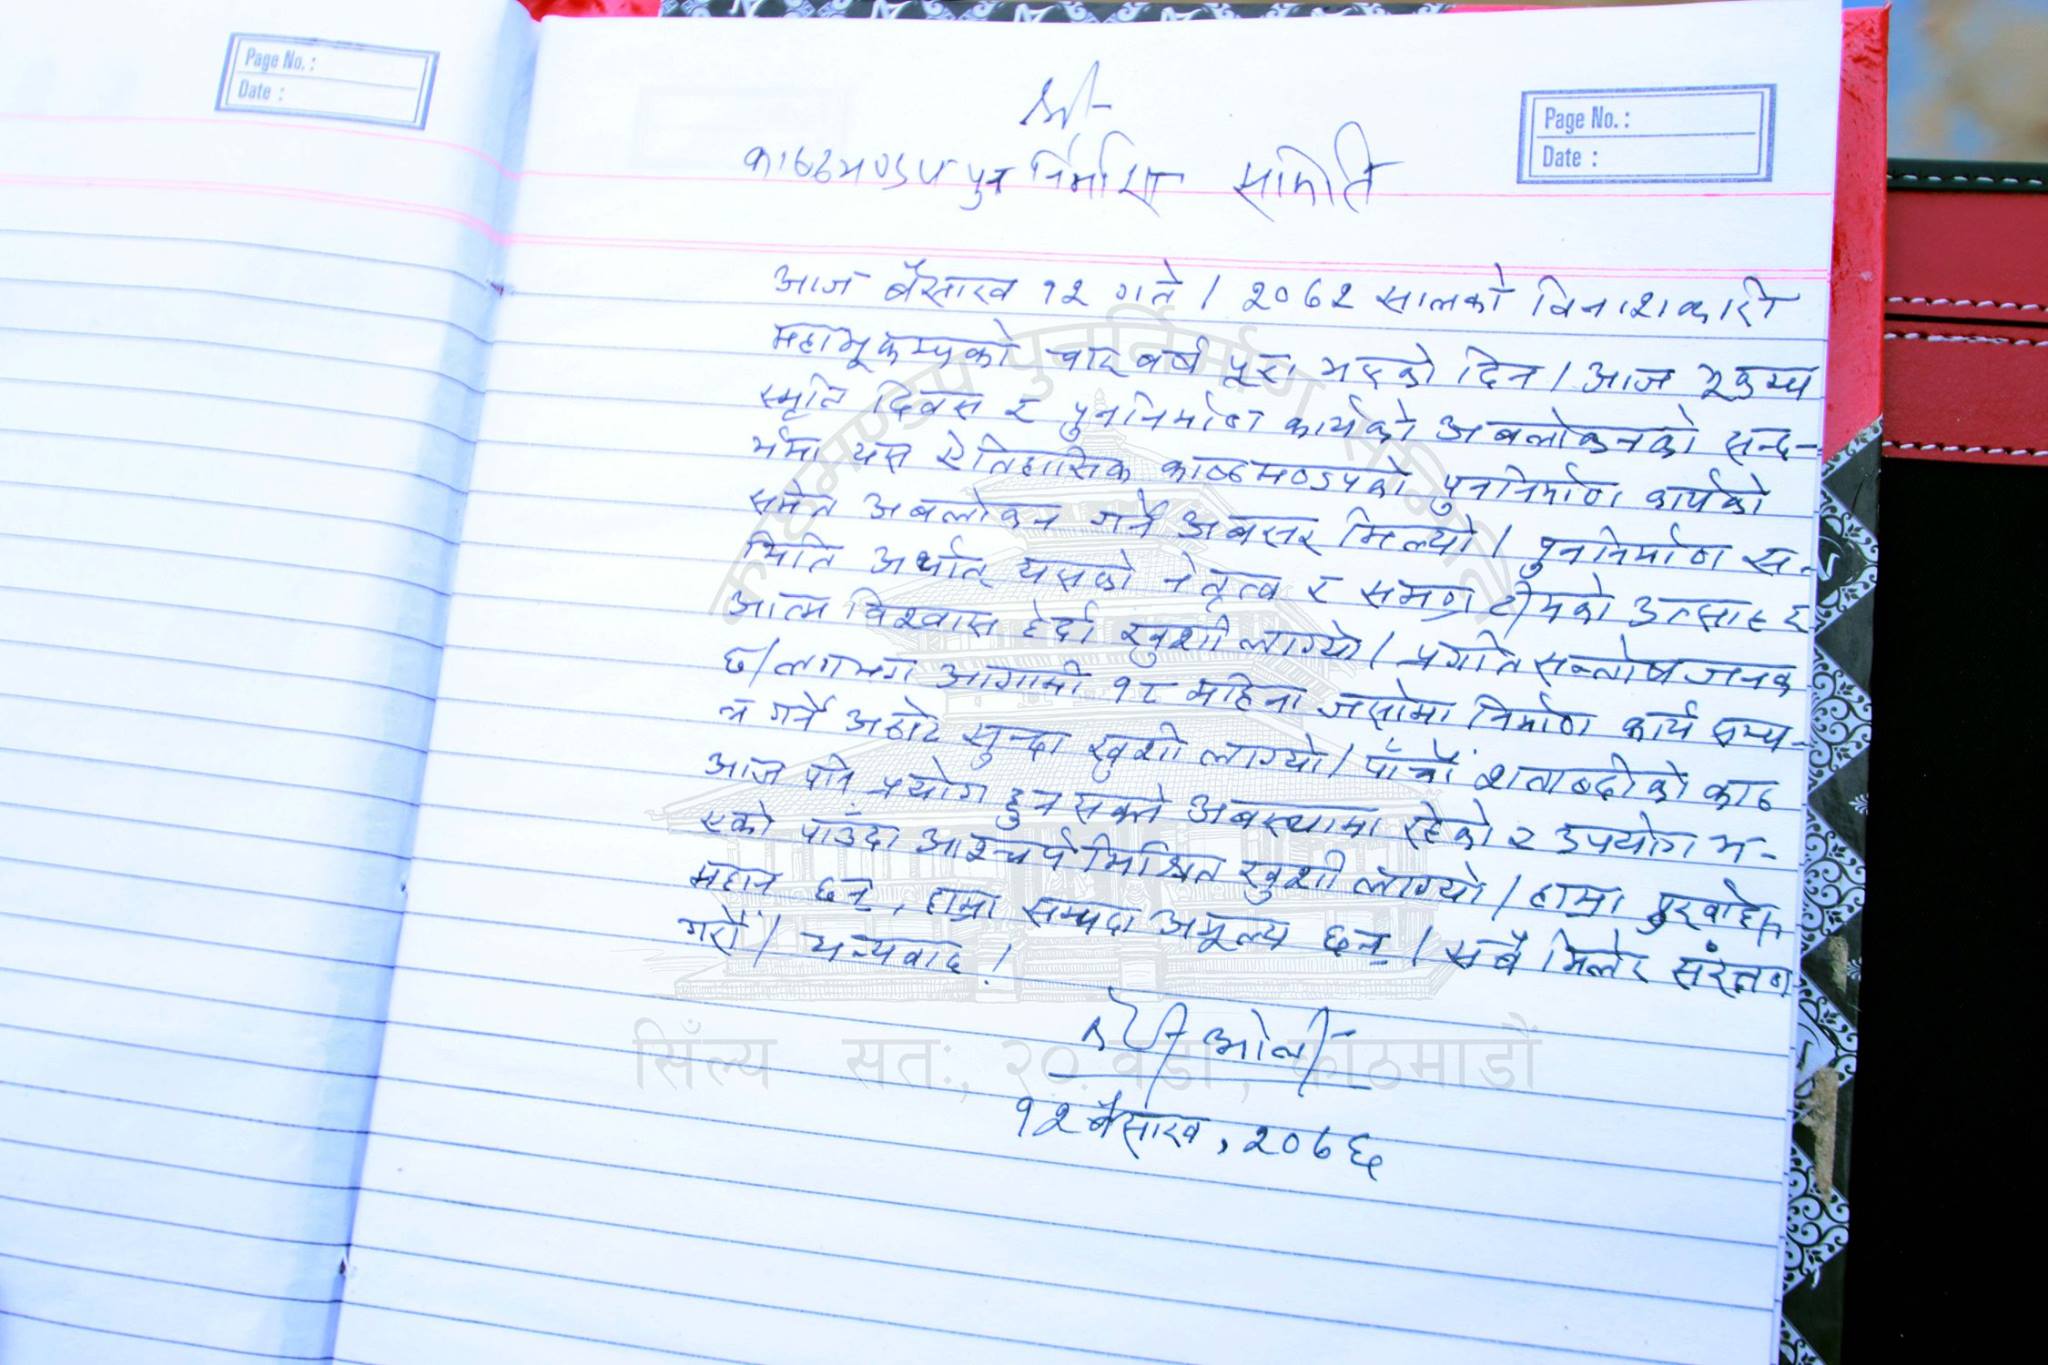 Page No. :
Date :
Page No. :
Date :
श्री
काष्ठमण्डप पुन र्निर्माण समिति
आज बैसाख १२ गते । २०७२ सालको विनाशकारी
महाभूकम्पको चार वर्ष पूरा भएको दिन । आज भूकम्प
स्मृति दिवस र पुननिर्माण कार्यको अबलोकनको सन्द-
र्भमा यस ऐतिहासिक काष्ठमण्डपको पुननिर्माण कार्यको
समेत अबलोकन गर्ने अबसर मिल्यो । पुननिर्माण स-
मिति अर्थात् यसको नेतृत्व र समग्र टीमको उत्साह र
आत्म विश्वास हेर्दा खुशी लाग्यो । प्रगति सन्तोषजनक
छ । लगभग आगामी १८ महिना जसोमा निर्माण कार्य सम्प-
न्न गर्ने अठोट सुन्दा खुशी लाग्यो । पाँचौं शताब्दीको काठ
आज पनि प्रयोग हुन सक्ने अबस्थामा रहेको र उपयोग भ-
एको पाउँदा आश्चर्य मिश्रित खुशी लाग्यो । हाम्रा पुरखाहरु
महान छन्, हाम्रा सम्पदा अमूल्य छन् । सबै मिलेर संरक्षण
गरौं । धन्यवाद !
के पी ओली
१२ बैसाख, २०७६
काष्ठमण्डप पुनर्निर्माण समिति
सिँल्य सतः, २० वडा, काठमाडौं